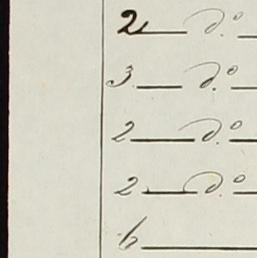 2 — d.º —
3 — d.º —
2 — d.º —
2 — d.º —
6 —